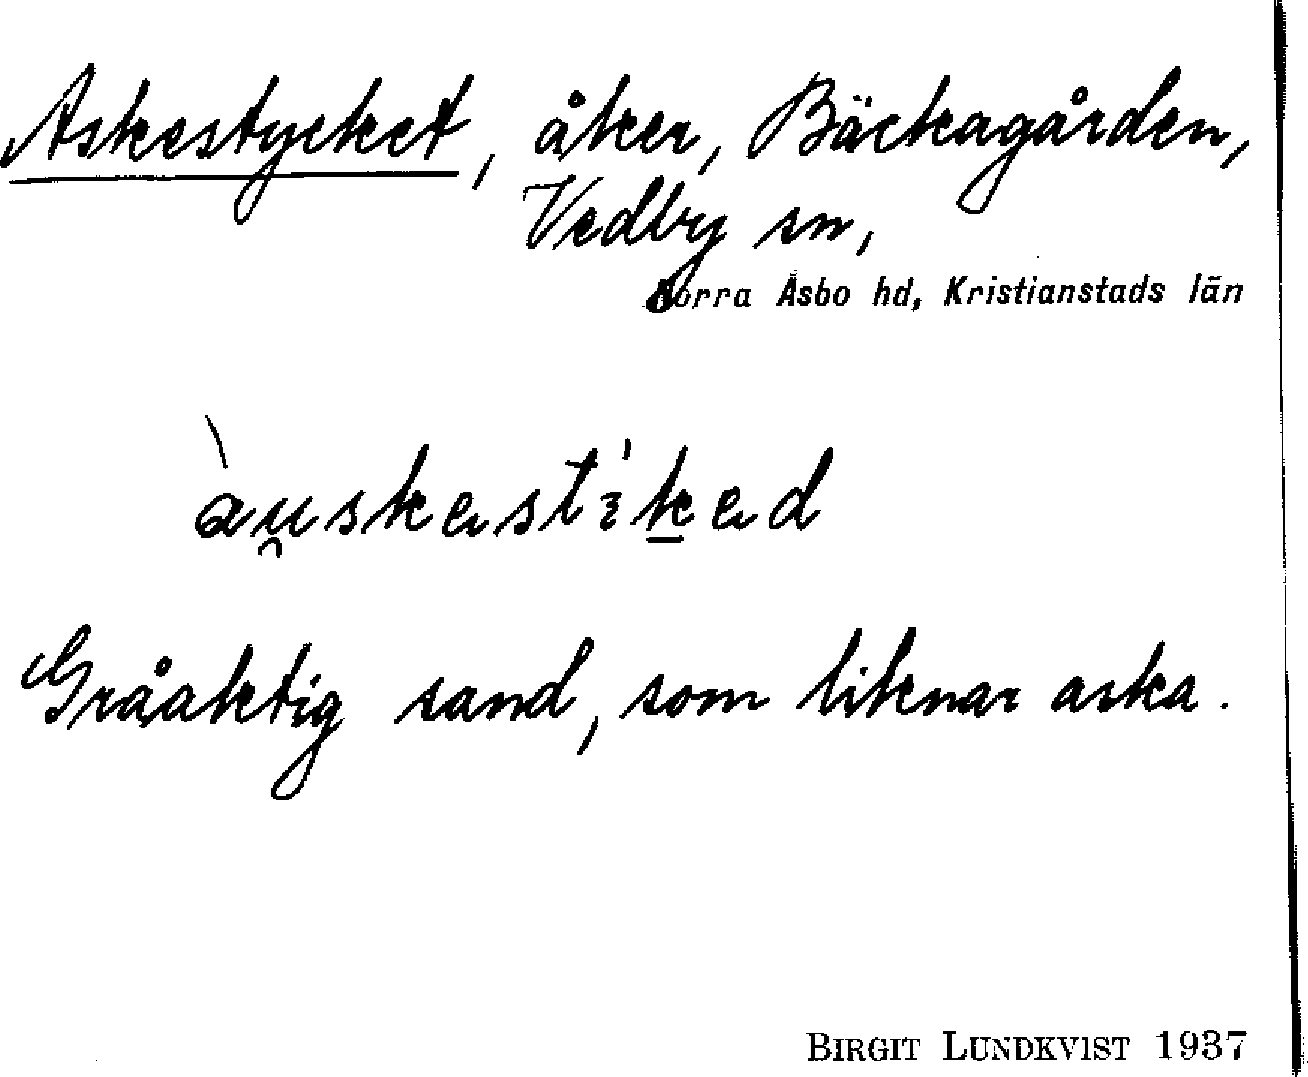 Askestycket, åker, Bäckagården,
Vedby sn,
Norra Åsbo hd, Kristianstads län
àu̯skastikad
Gråaktig sand, som liknar aska.
BIRGIT LUNDKVIST 1937